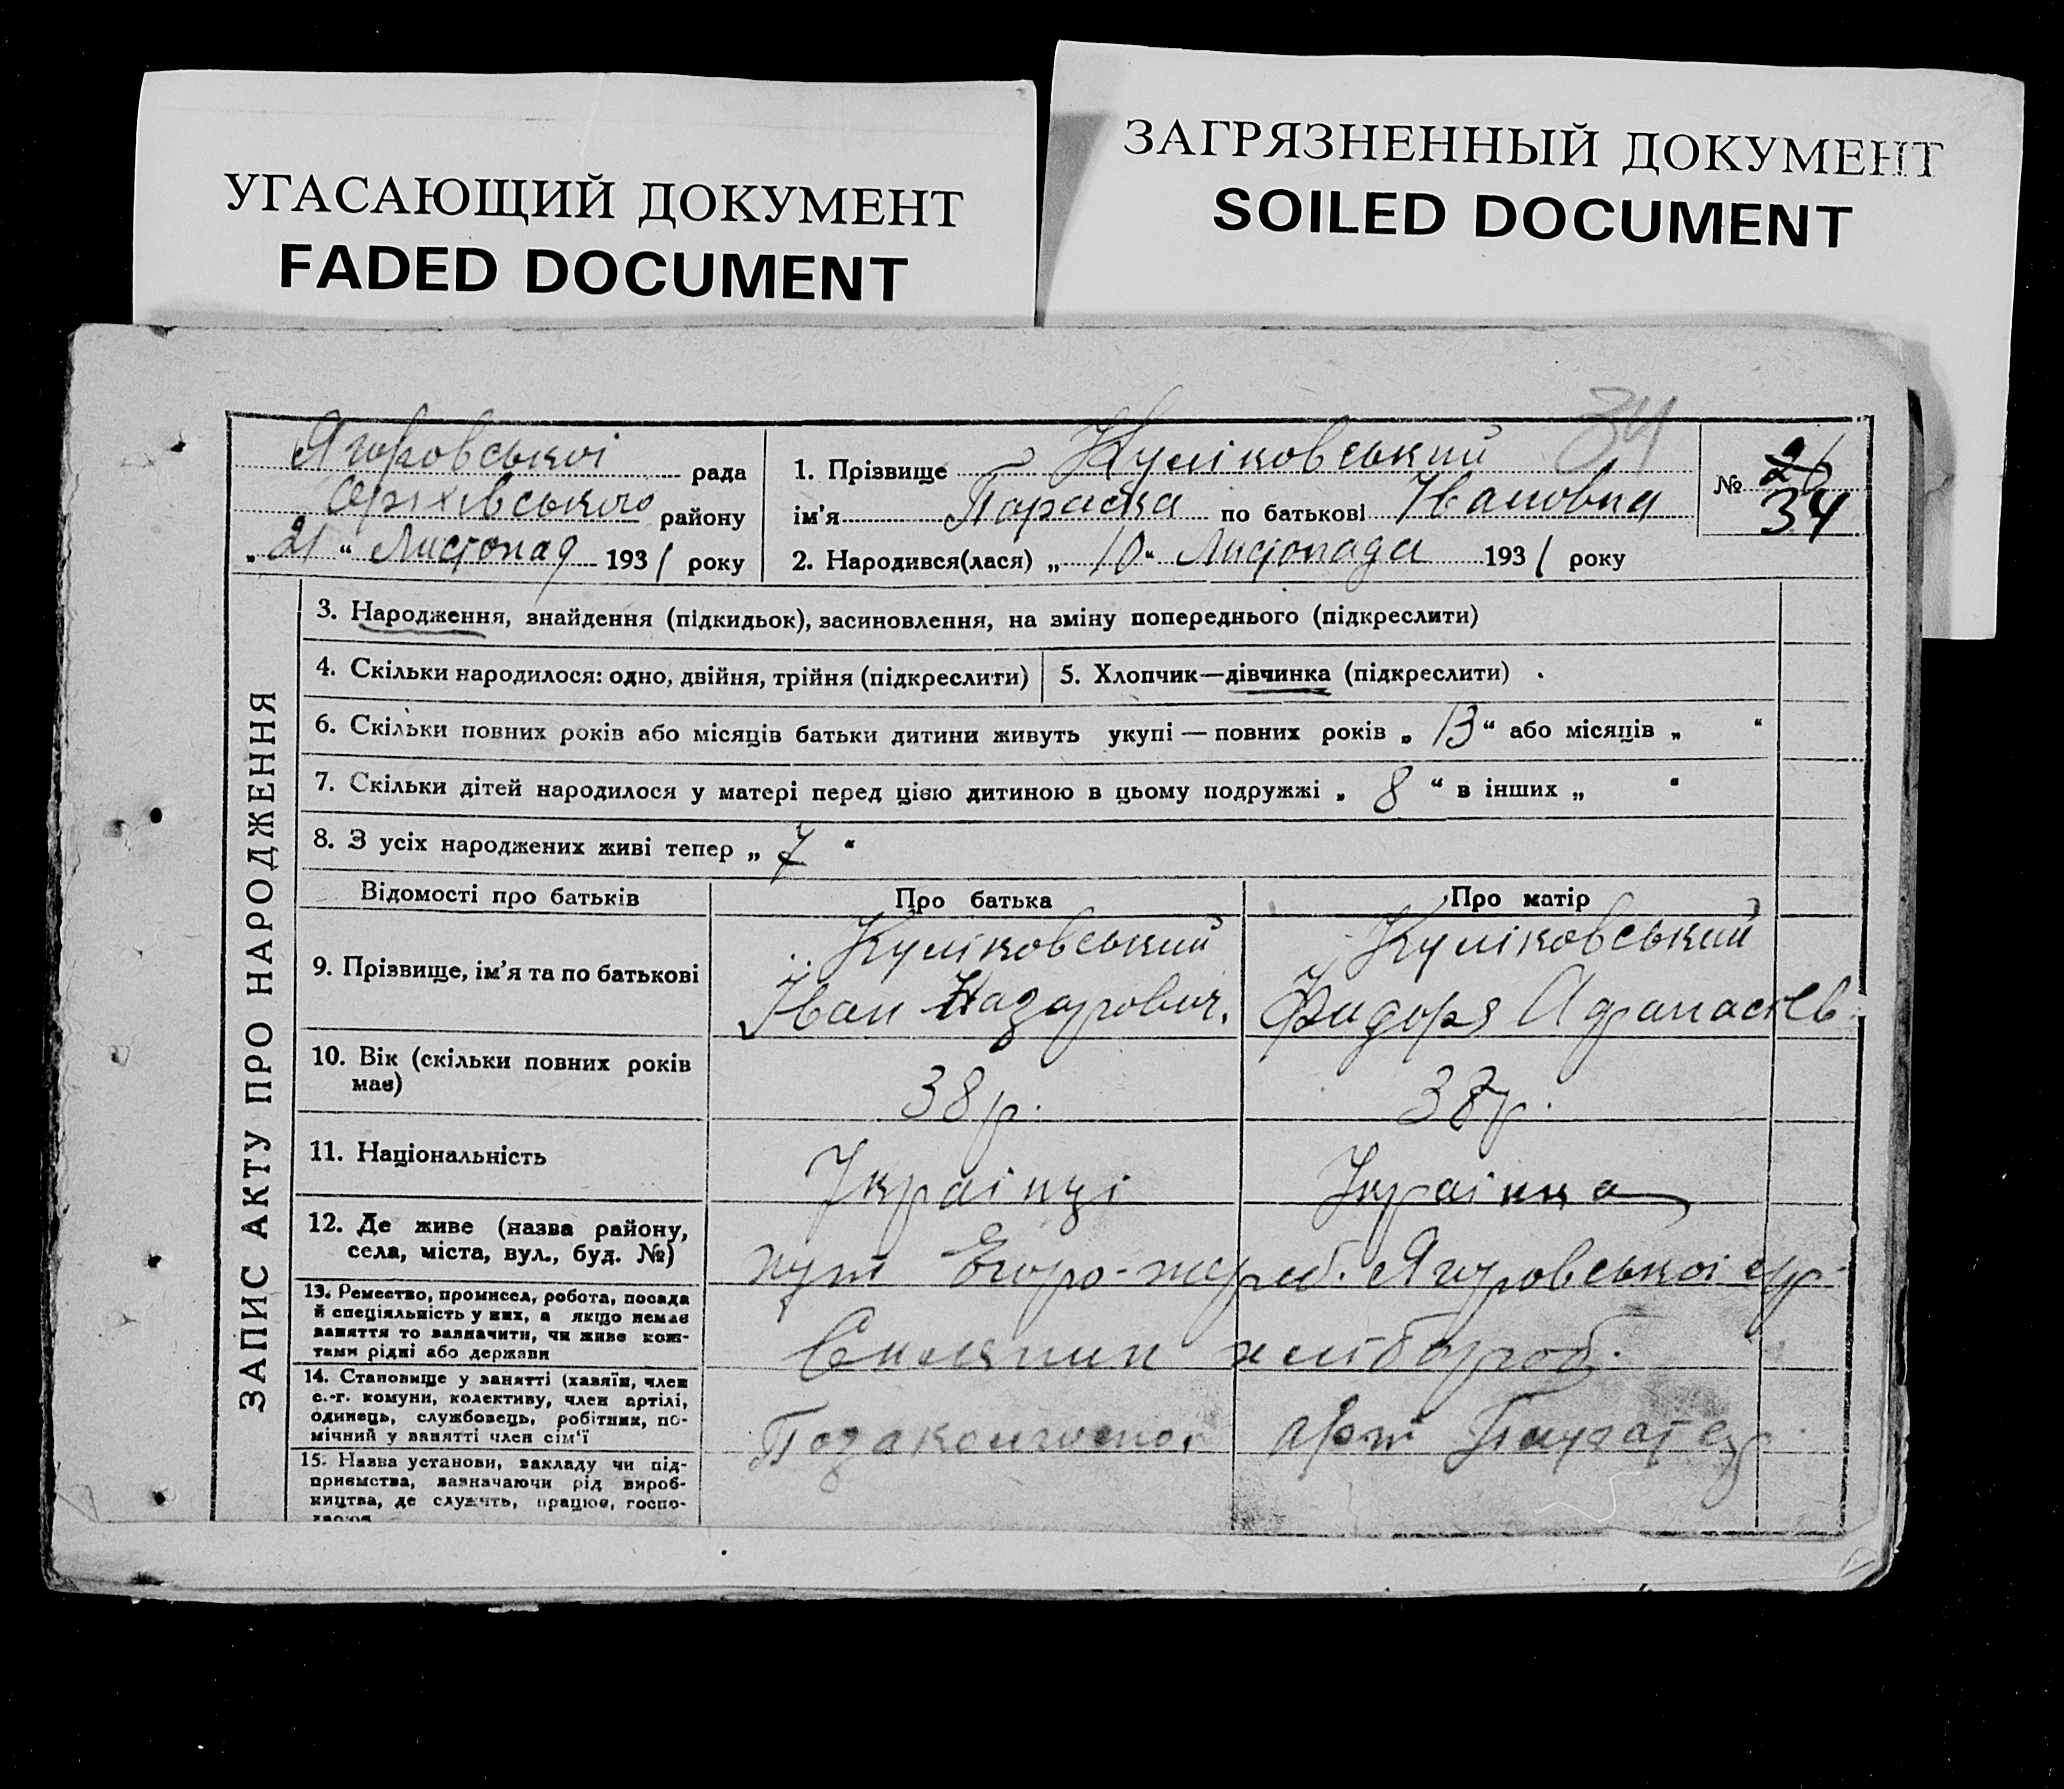 УГАСАЮЩИЙ ДОКУМЕНТ
FADED DOCUMENT
ЗАГРЯЗНЕННЫЙ ДОКУМЕНТ
SOILED DOCUMENT
34
Ягоровської рада
Оріхівського району
„21“ Листопад 1931 року
1. Прізвище Куліковський
ім'я Параска по батькові Івановна
2. Народився(лася) „10“ Листопада 1931 року
№ 26
34
ЗАПИС АКТУ ПРО НАРОДЖЕННЯ
3. Народження, знайдення (підкидьок), засиновлення, на зміну попереднього (підкреслити)
4. Скільки народилося: одно, двійня, трійня (підкреслити)
5. Хлопчик—дівчинка (підкреслити)
6. Скільки повних років або місяців батьки дитини живуть укупі — повних років „13“ або місяців „ “
7. Скільки дітей народилося у матері перед цією дитиною в цьому подружжі „8“ в інших „ “
8. З усіх народжених живі тепер „7“
Відомості про батьків
Про батька
Про матір
9. Прізвище, ім'я та по батькові
Куліковський
Іван Назарович.
Куліковський
Фидоря Афанасіев
10. Вік (скільки повних років
має)
38 р.
37 р.
11. Національність
Українці
Українка
12. Де живе (назва району,
села, міста, вул., буд. №)
хут Ягоровської с/р
13. Ремество, промисел, робота, посада
й спеціяльність у них, а якщо немає
заняття то зазначити, чи живе кош-
тами рідні або держави
Силянин хлібороб.
14. Становище у занятті (хазяїн, член
с.-г. комуни, колективу, член артілі,
одинець, службовець, робітник, по-
мічний у занятті член сім'ї
арт
15. Назва установи, закладу чи під-
приємства, зазначаючи рід вироб-
ництва, де служить, працює, госпо-